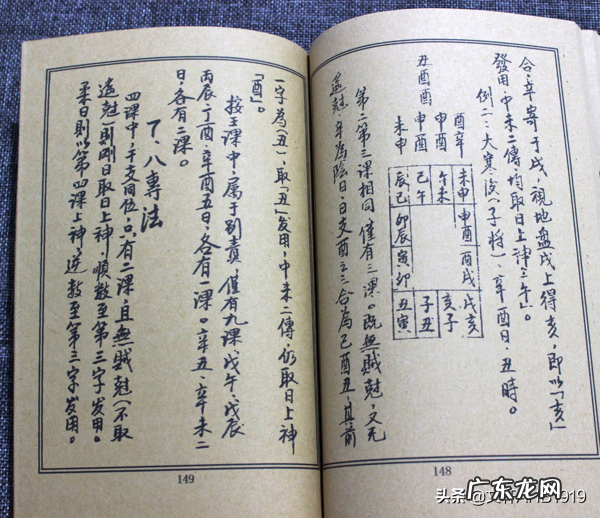 合,辛寄于戌,視地盤戌上得亥,即以「亥」
發用,中末二傳均取日上神「午」。
例二:大寒後(子將),辛酉日,丑時。
丑酉酉
酉辛
申酉
申酉
未申
未申 申酉 酉戌 戌亥
午未 亥子
巳午 子丑
辰巳 卯辰 寅卯 丑寅
第二第三課相同,僅有三課。既無賊尅,又无
遙尅,辛為陰日,日支酉之三合為巳酉丑,其前
148
一字為(丑),取「丑」發用,中末二傳,仍取日上神
「酉」。
按壬課中,属于别責,僅有九課,戊午、戊辰
丙辰、丁酉、辛酉五日,各有一課。辛丑、辛未二
日,各有二課。
了、八專法
四課中,干支同位,只有二課,且無賊尅(不取
遙尅)則剛日取日上神,順數至第三字發用。
柔日則以第四課上神,逆数至第三字发用。
149
广东龙网
头条
1919